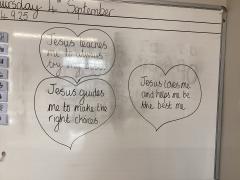 Thursday 4th September
4.9.25
Jesus teaches
me to always
try my best
Jesus guides
me to make the
right choices
Jesus loves me
and helps me be
the best me